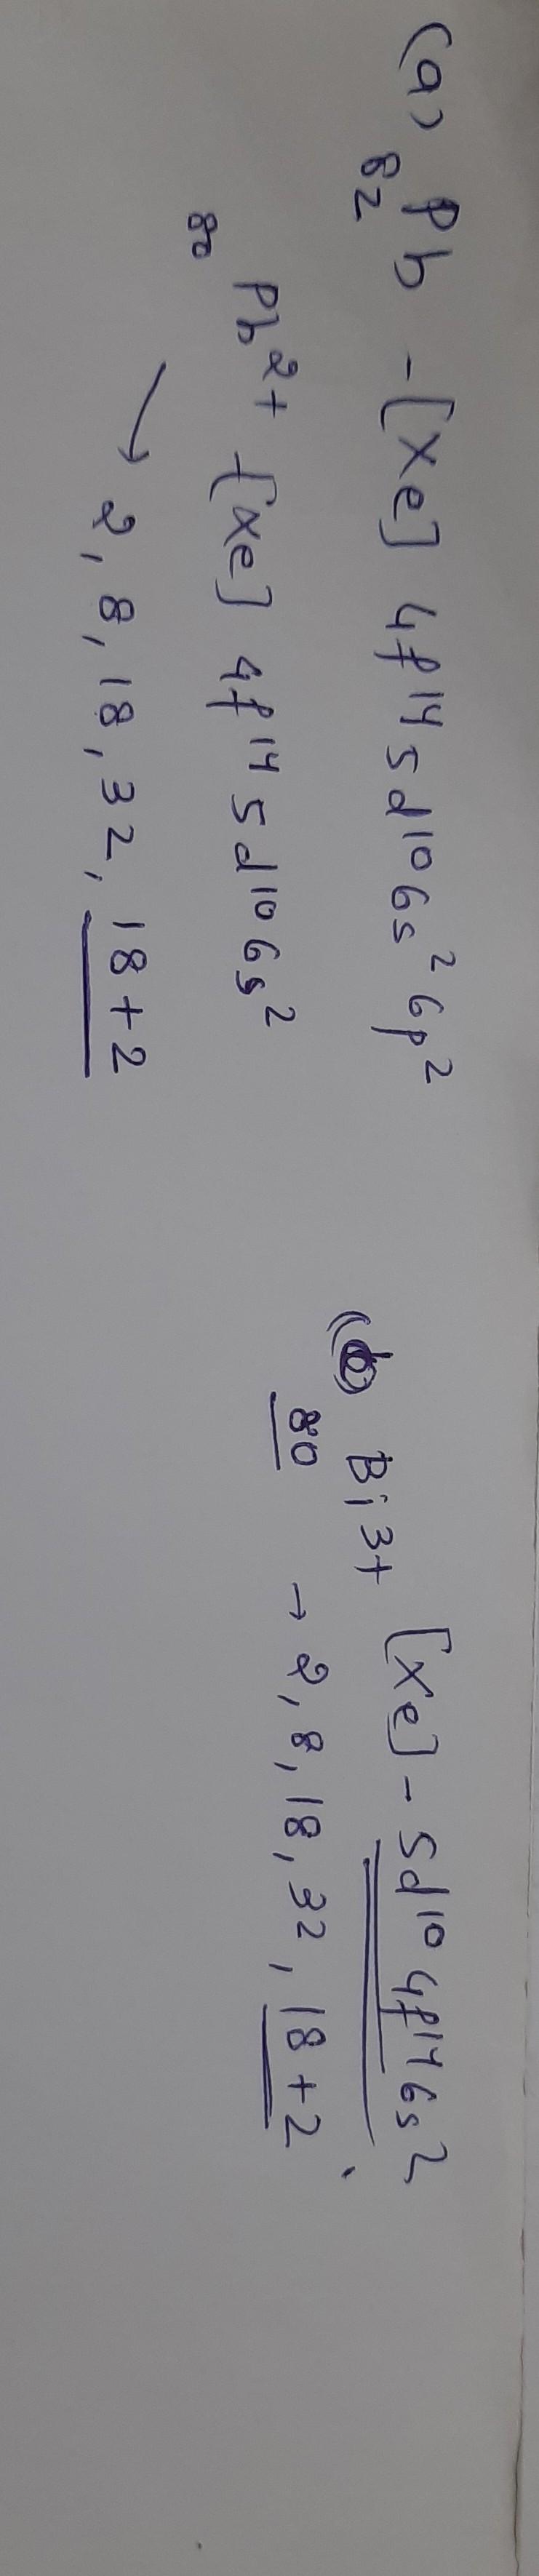 (a) 82 Pb - [Xe] 4f¹⁴ 5d¹⁰ 6s² 6p²
80 Pb²⁺ - [Xe] 4f¹⁴ 5d¹⁰ 6s²
→ 2, 8, 18, 32, 18+2
(b) Bi³⁺ [Xe] - 5d¹⁰ 4f¹⁴ 6s²
80 → 2, 8, 18, 32, 18+2